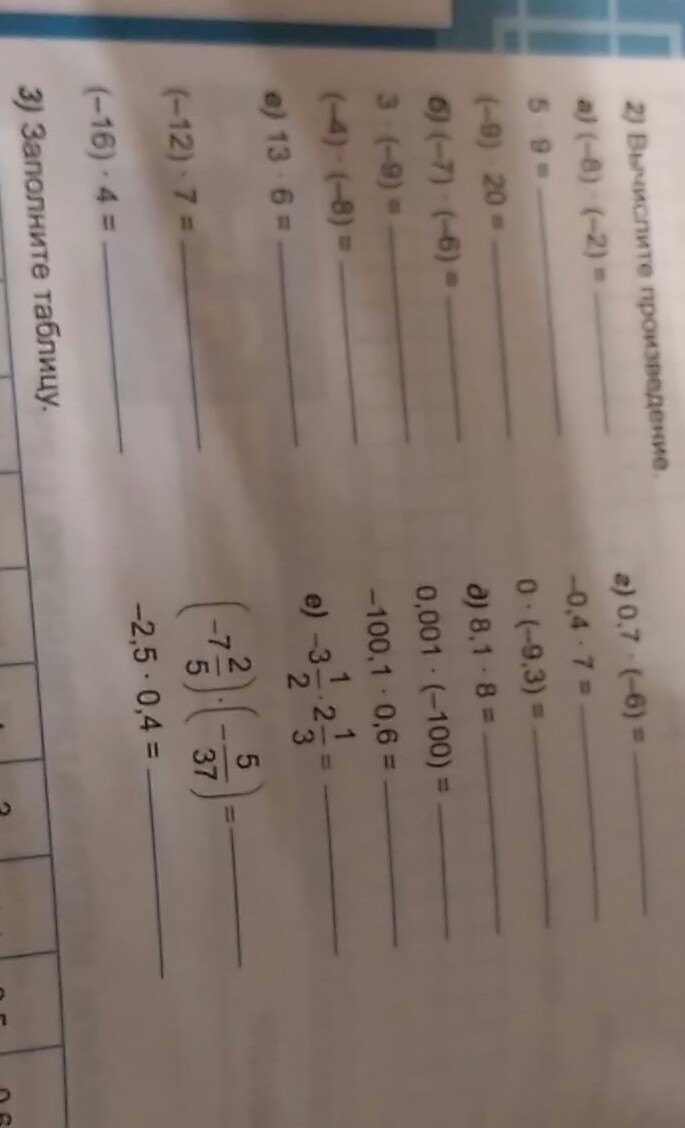 2) Вычислите произведение.
а) (−8) · (−2) =
5 · 9 =
(−9) · 20 =
б) (−7) · (−6) =
3 · (−9) =
(−4) · (−8) =
в) 13 · 6 =
(−12) · 7 =
(−16) · 4 =
г) 0,7 · (−6) =
−0,4 · 7 =
0 · (−9,3) =
д) 8,1 · 8 =
0,001 · (−100) =
−100,1 · 0,6 =
е) −3 1/2 · 2 1/3 =
(−7 2/5) · (−5/37) =
−2,5 · 0,4 =
3) Заполните таблицу.